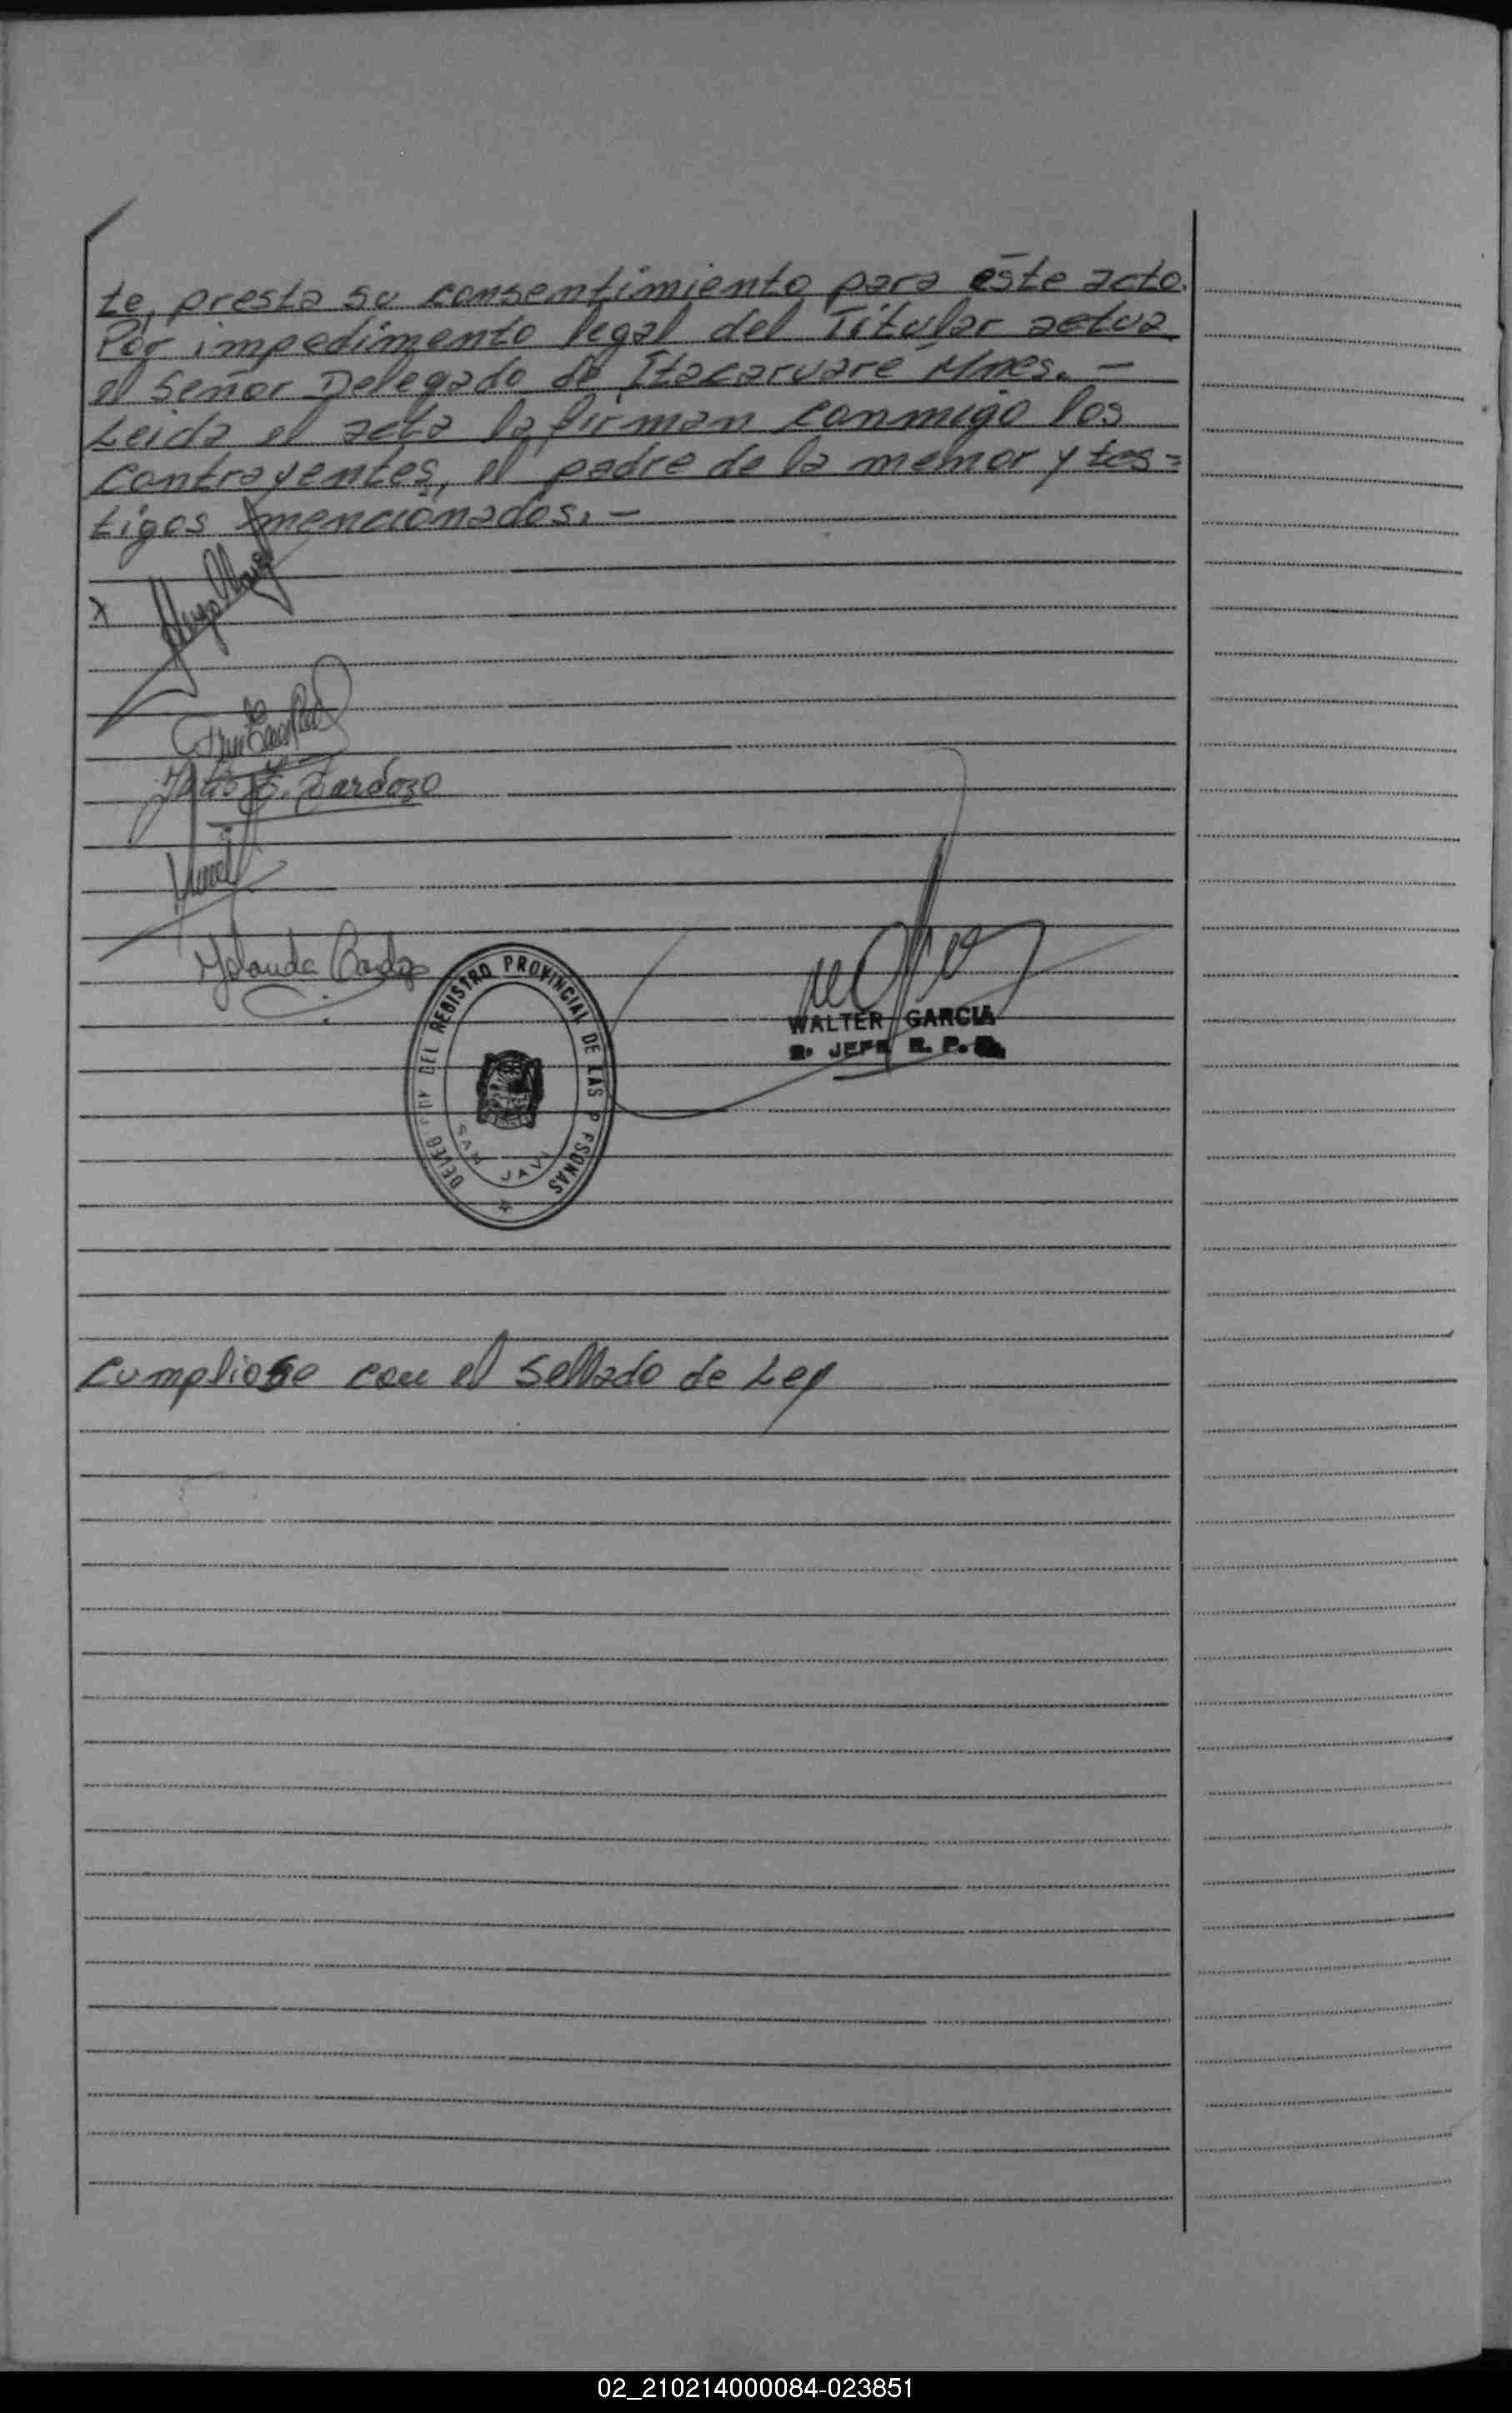 te, presta su consentimiento para éste acto.
Por impedimento legal del Titular actua
el Señor Delegado de Itacaruaré Mnes. —
Leida el acta la firman conmigo los
contrayentes, el padre de la menor y tes=
tigos mencionados. —
x
Cardozo
Yolanda Cardozo
DEL REGISTRO PROVINCIAL DE LAS
SAN JAVI
WALTER GARCIA
JEFE R. P.
Cumpliose con el Sellado de Ley
02_210214000084-023851